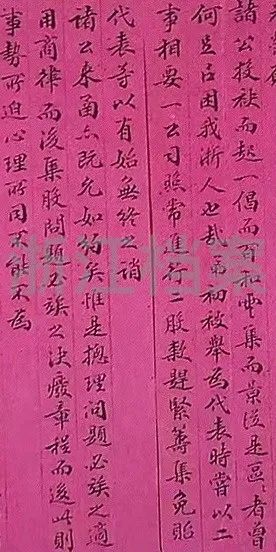 諸公投袂而起一倡而百和雲集而景從是區々者曾
何足以困我浙人也哉弟初被舉爲代表時嘗以二
事相要一公司照常進行二股款趕緊籌集免貽
代表等以有始無終之誚
諸公來函亦既允如約矣惟是總理問題必俟之適
用商律而後集股問題必俟之決廢章程而後此則
事勢所迫心理所同不能不爲
浙江档案